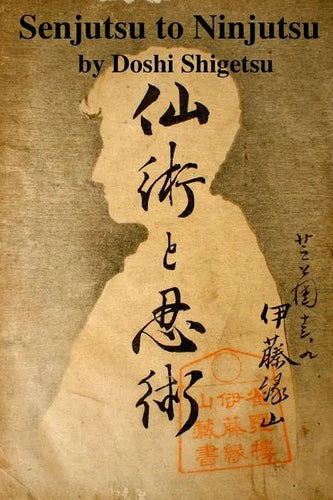 Senjutsu to Ninjutsu
by Doshi Shigetsu
仙術と忍術
伊藤縁山
伊藤
山藏書